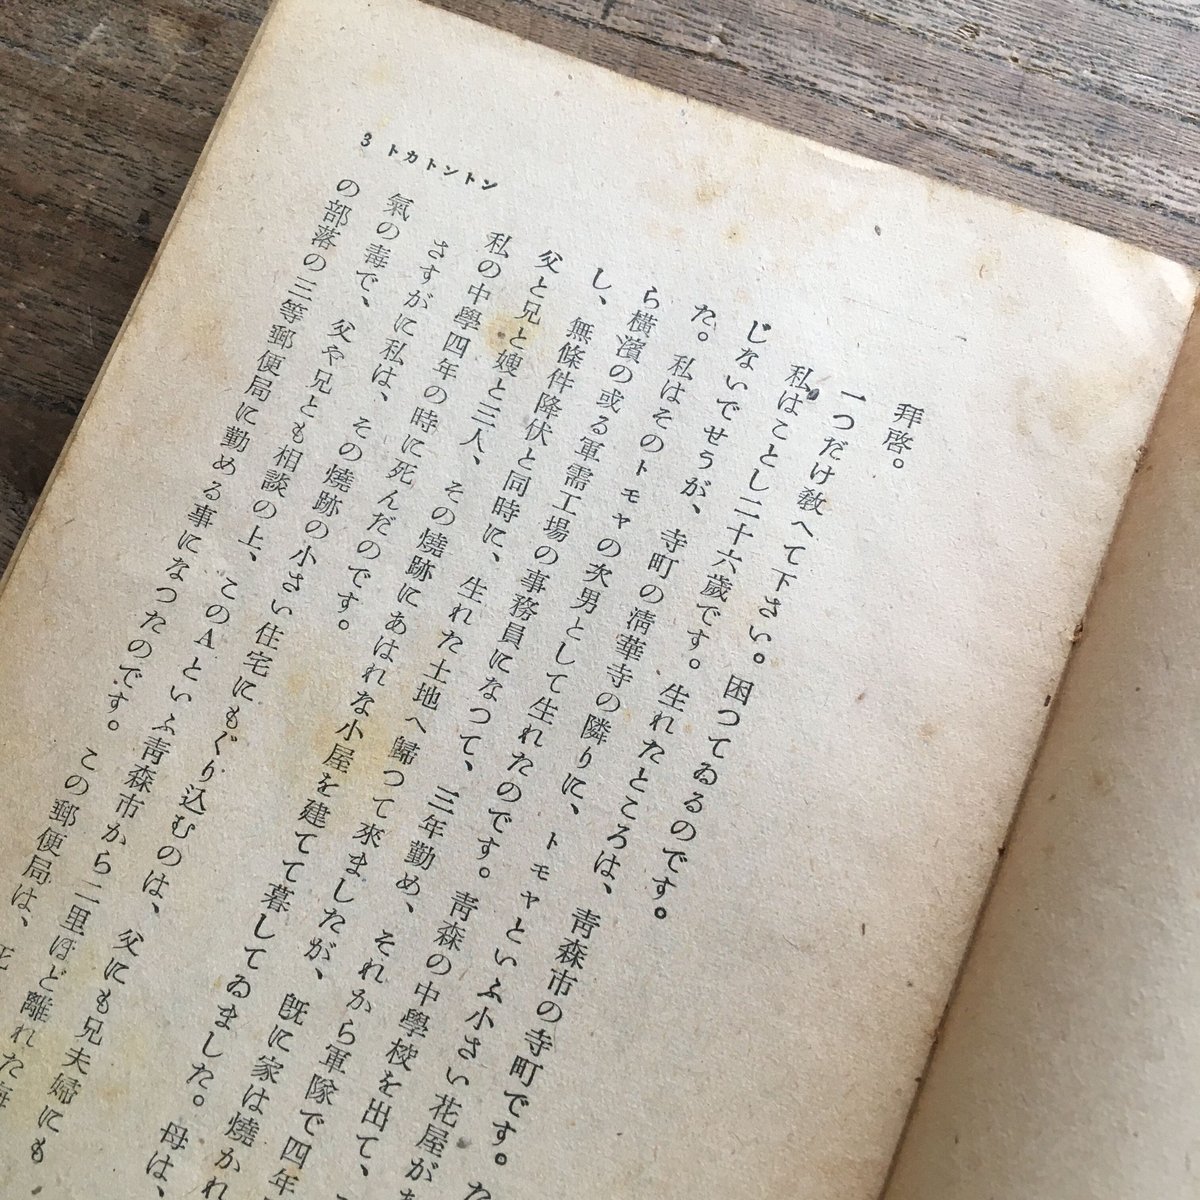 3 トカトントン
拜啓。
一つだけ敎へて下さい。困つてゐるのです。
私はことし二十六歲です。生れたところは、靑森市の寺町です。た
じないでせうが、寺町の淸華寺の隣りに、トモヤといふ小さい花屋が
た。私はそのトモヤの次男として生れたのです。靑森の中學校を出て、
ら橫濱の或る軍需工場の事務員になつて、三年勤め、それから軍隊で四年
し、無條件降伏と同時に、生れた土地へ歸つて來ましたが、旣に家は燒かれ
父と兄と嫂と三人、その燒跡にあはれな小屋を建てて暮してゐました。母は、
私の中學四年の時に死んだのです。
さすがに私は、その燒跡の小さい住宅にもぐり込むのは、父にも兄夫婦にも
氣の毒で、父や兄とも相談の上、このAといふ靑森市から二里ほど離れた海
の部落の三等郵便局に勤める事になつたのです。この郵便局は、死